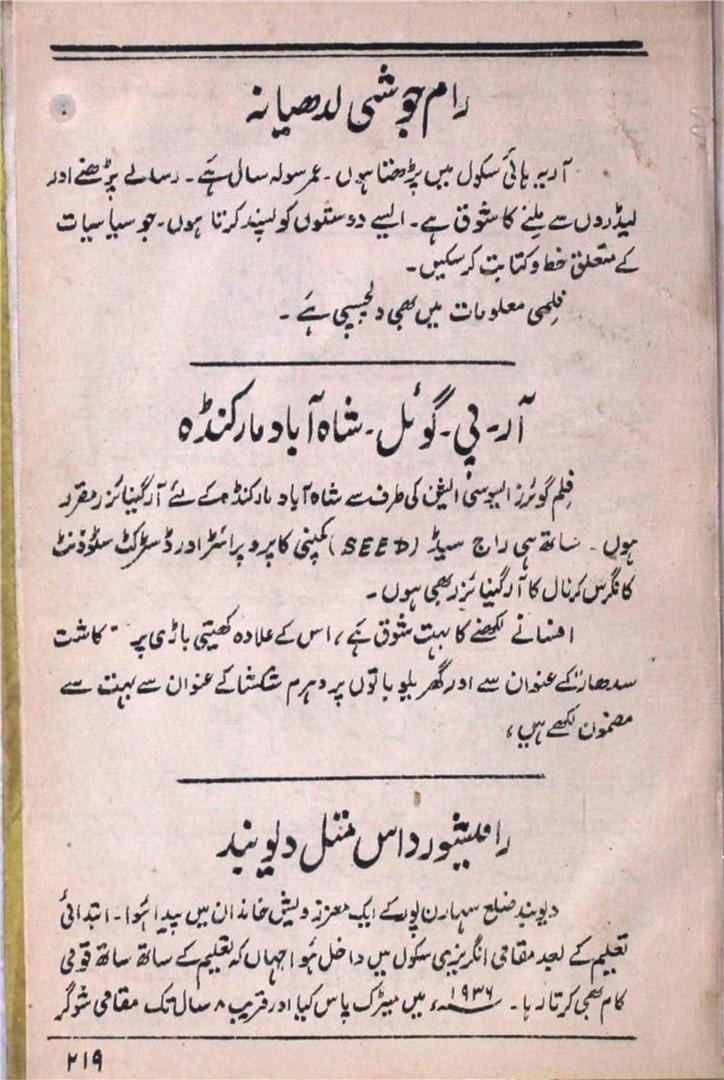 رام جوشی لدھیانہ
آریہ ہائی سکول میں پڑھتا ہوں۔ عمر سولہ سال ہے۔ رسالے پڑھنے اور
لیڈروں سے ملنے کا شوق ہے۔ ایسے دوستوں کو پسند کرتا ہوں۔ جو سیاسیات
کے متعلق خط و کتابت کر سکیں۔
فلمی معلومات میں بھی دلچسپی ہے۔
آر۔ پی۔ گوئل۔ شاہ آباد مارکنڈہ
فلم گوئرز ایسوسی ایشن کی طرف سے شاہ آباد مارکنڈہ کے لئے آرگینائزر مقرر
ہوں۔ ساتھ ہی راج سیڈ (SEED) کمپنی کا پروپرائٹر اور ڈسٹرکٹ سٹوڈنٹ
کانگرس کرنال کا آرگینائزر بھی ہوں۔
افسانے لکھنے کا بہت شوق ہے، اس کے علاوہ کھیتی باڑی پر "کاشت
سدھار" کے عنوان سے اور گھریلو باتوں پر دہرم شکشا کے عنوان سے بہت سے
مضمون لکھے ہیں،
رامیشور داس متل دیوبند
دیوبند ضلع سہارن پور کے ایک معزز ویش خاندان میں پیدا ہُوا۔ ابتدائی
تعلیم کے بعد مقامی انگریزی سکول میں داخل ہُوا جہاں کہ تعلیم کے ساتھ ساتھ قومی
کام بھی کرتا رہا۔ ۱۹۳۶ء میں میٹرک پاس کیا اور قریب ۸ سال تک مقامی شوگر
۲۱۹